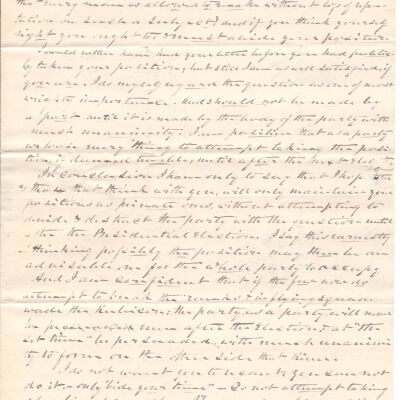 that every man is allowed to make without loss of repu-
tation on such a subject? and if you think yourself
right you ought to & must abide your position.
I would rather have had your letter before you had public-
ly taken your position; but still I am as well satisfied if
you are. I do myself regard the question as one of most
weighty importance. And should not be made by
a part until it is made by the body of the party with
much unanimity; I am positive that as a party
we every thing to attempt to take the posi-
tion, until after the next
In conclusion I have only to say that I hope
that that think with you, will only maintain your
positions as private ones, without attempting to
divide & distract the party with the question until
after the Presidential Election. I say this earnestly
thinking possibly the position may then be an
advisable one for the whole party to occupy
And I am confident that if the few now do
attempt to break the ranks & in flying squads
wade the Rubicon; the party, as a party will never
be even after the Election, & at "the
be persuaded, with much unanimi-
ty to form on the other side that time.
I do not want you to recant, you can not
do it – only "bide your time" – Do not attempt to king